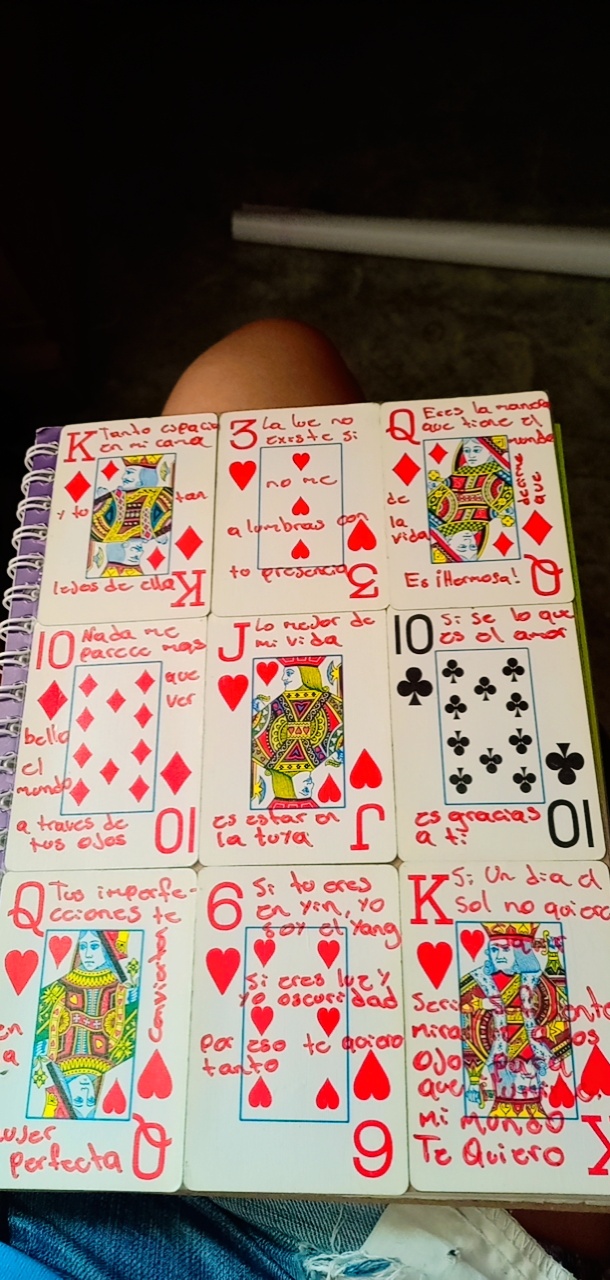 K Tanto espacio
en mi cama
y tu
tan
lejos de ella
K
3 La luz no
existe si
no me
alumbras con
tu presencia
3
Q Eres la manera
que tiene el
mundo
de
decirme
que
la
vida
Es ¡Hermosa!
Q
10 Nada me
parece mas
que
ver
bello
el
mundo
a traves de
tus ojos
10
J Lo mejor de
mi vida
es estar en
la tuya
J
10 Si se lo que
es el amor
es gracias
a ti
10
Q Tus imperfe-
cciones te
convierten
en
a
ujer
perfecta
Q
6 Si tu eres
en yin, yo
soy el yang
Si eres luz y
yo oscuridad
por eso te quiero
tanto
6
K Si Un dia el
Sol no quiere
mira
os
ojo
que
mi mundo
Te Quiero
K